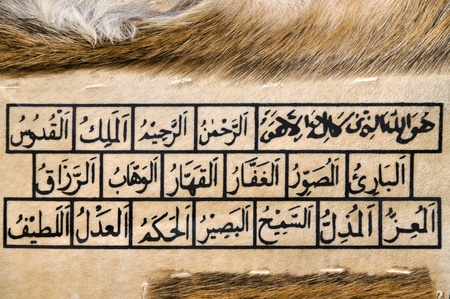 هو الله الذي لا إله إلا هو الرَّحْمٰنُ الرَّحِيْمُ اَلْمَلِكُ الْقُدُّوْسُ
اَلْبَارِئُ الْمُصَوِّرُ الْغَفَّارُ الْقَهَّارُ الْوَهَّابُ الرَّزَّاقُ
اَلْمُعِزُّ الْمُذِلُّ السَّمِيْعُ الْبَصِيْرُ الْحَكَمُ الْعَدْلُ اَللَّطِيْفُ